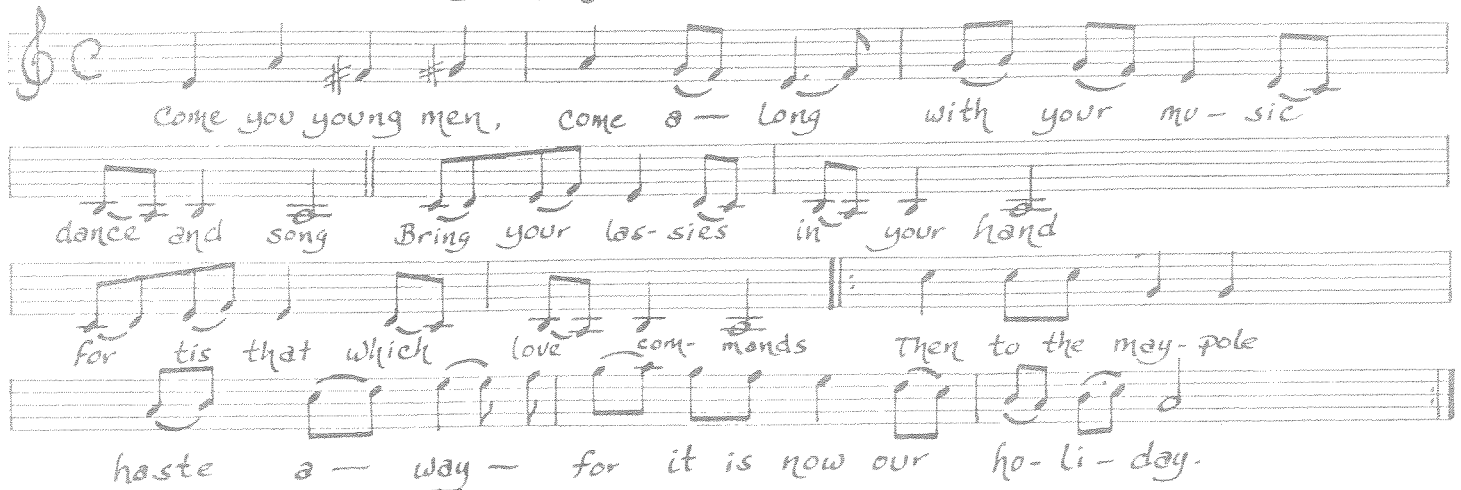 Come you young men, come a — long with your mu - sic
dance and song Bring your las - sies in your hand
for tis that which love com - mands Then to the may - pole
haste a — way — for it is now our ho - li - day.